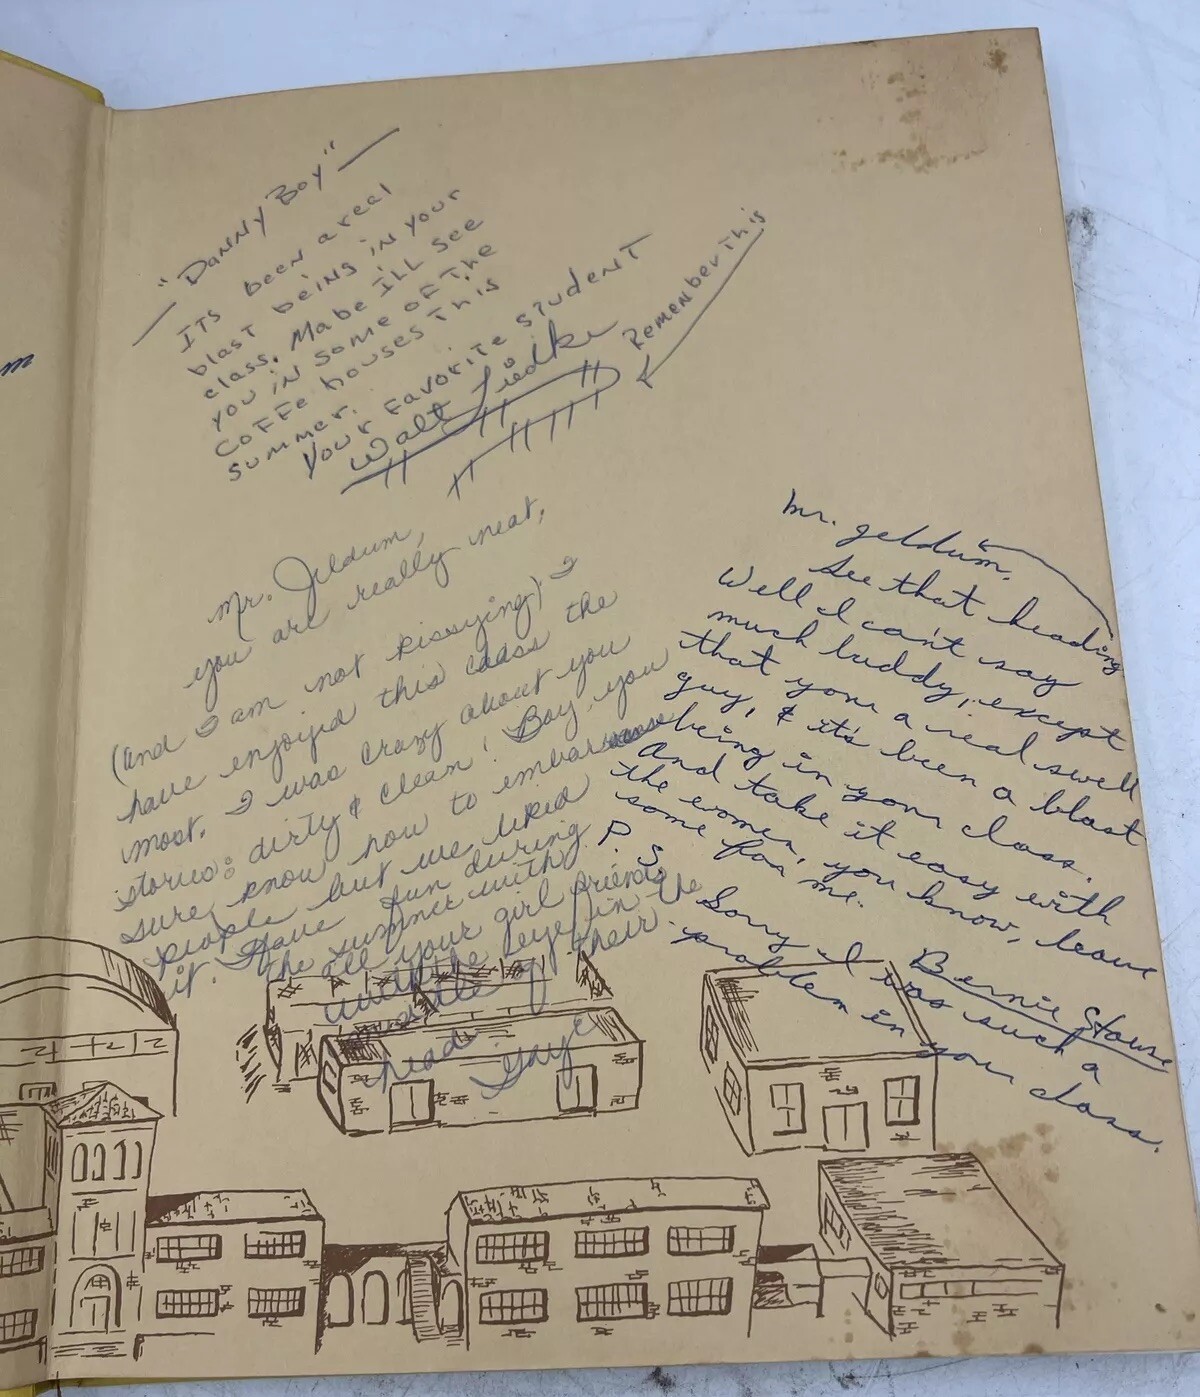 "Danny Boy"
ITS been a real
blast being in your
class. Mabe I'll see
you in some of the
coffe houses this
summer.
Your favorite student
Walt Liedke
Remember this
Mr. Jeldum,
you are really neat,
(and I am not kissying) I
have enjoyed this class the
most. I was crazy about you
stories: dirty & clean! Boy, you
sure know how to embarass
people but we liked
it. Have fun during
the summer with
all your girl friends
with the eye in the
middle of their
head
Gaye
Mr. Geldum,
See that heading
Well I can't say
much buddy, except
that your a real swell
guy, & it's been a blast
being in your class.
And take it easy with
the women, you know, leave
some for me.
Bernie Stowe
P. S.
Sorry I was such a
problem in your class.
m